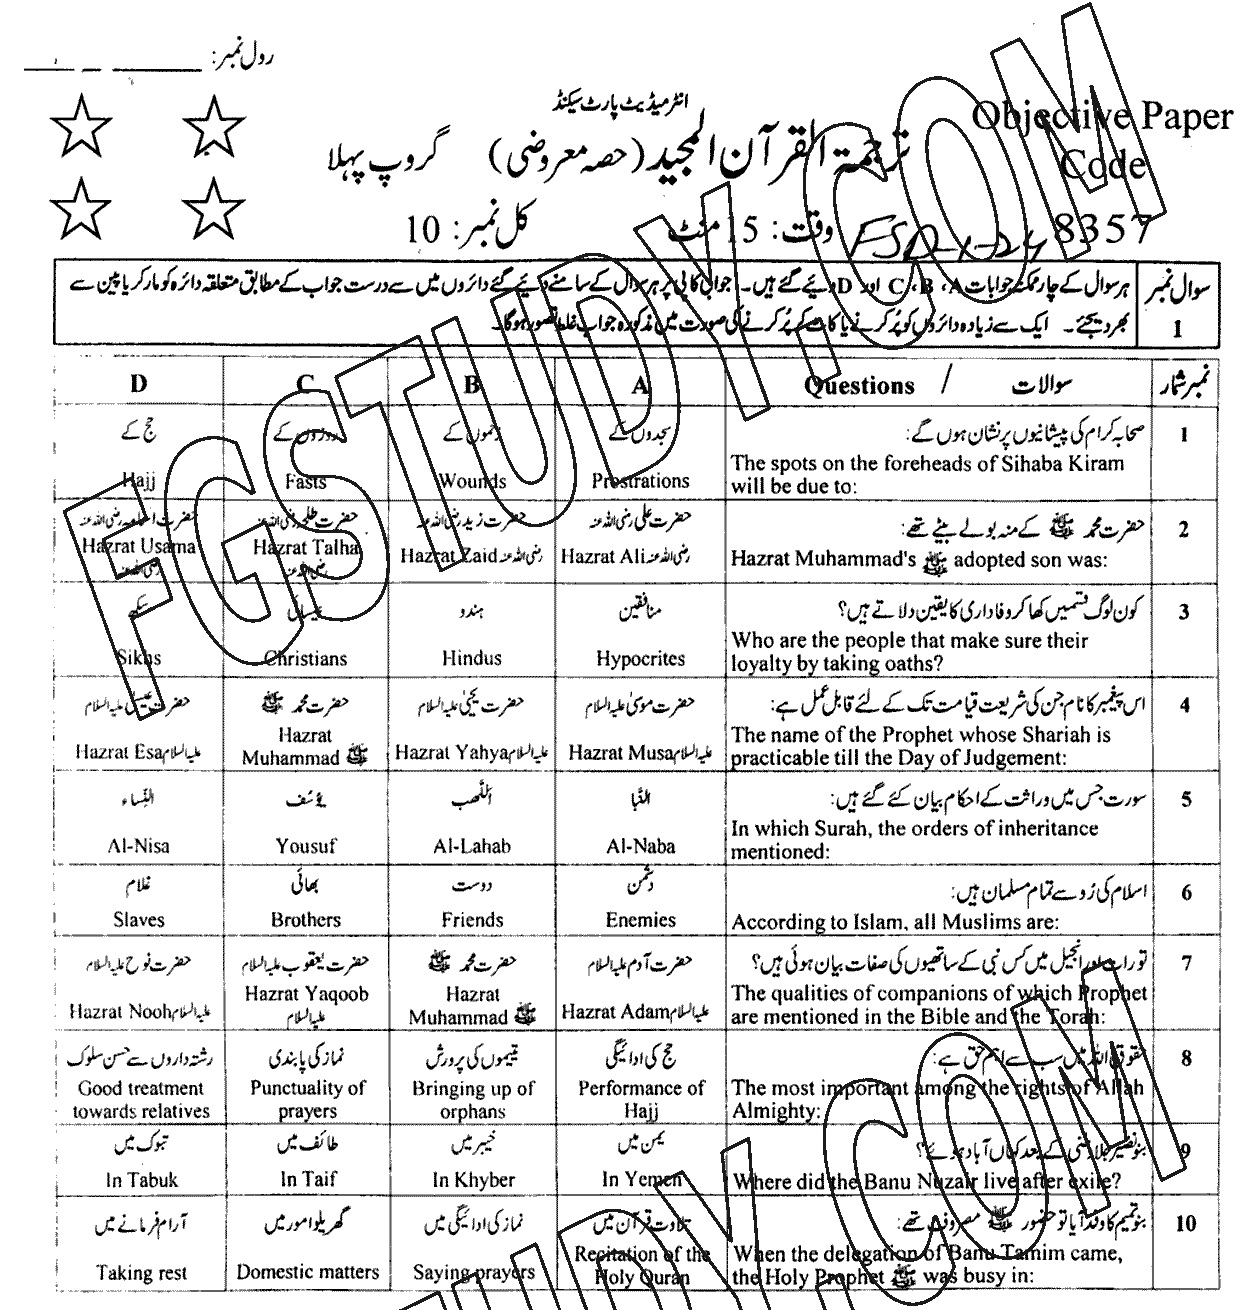 رول نمبر:
انٹرمیڈیٹ پارٹ سیکنڈ
Objective Paper
Code
8357
ترجمۃ القرآن المجید (حصہ معروضی) گروپ پہلا
وقت: 15 منٹ کل نمبر: 10
سوال نمبر 1
ہر سوال کے چار ممکنہ جوابات A، B، C اور D دیئے گئے ہیں۔ جوابی کاپی پر ہر سوال کے سامنے دیئے گئے دائروں میں سے درست جواب کے مطابق متعلقہ دائرہ کو مارکر یا پین سے
بھر دیجئے۔ ایک سے زیادہ دائروں کو پُر کرنے یا کاٹ کر پُر کرنے کی صورت میں مذکورہ جواب غلط تصور ہوگا۔
نمبر شمار سوالات / Questions A B C D
1 صحابہ کرام کی پیشانیوں پر نشان ہوں گے:
The spots on the foreheads of Sihaba Kiram
will be due to:
سجدوں کے
Prostrations
زخموں کے
Wounds
روزوں کے
Fasts
حج کے
Hajj
2 حضرت محمد ﷺ کے منہ بولے بیٹے تھے:
Hazrat Muhammad's ﷺ adopted son was:
حضرت علی رضی اللہ عنہ
Hazrat Ali رضی اللہ عنہ
حضرت زید رضی اللہ عنہ
Hazrat Zaid رضی اللہ عنہ
حضرت طلحہ رضی اللہ عنہ
Hazrat Talha
رضی اللہ عنہ
حضرت اسامہ رضی اللہ عنہ
Hazrat Usama
رضی اللہ عنہ
3 کون لوگ قسمیں کھا کر وفاداری کا یقین دلاتے ہیں؟
Who are the people that make sure their
loyalty by taking oaths?
منافقین
Hypocrites
ہندو
Hindus
عیسائی
Christians
سکھ
Sikhs
4 اس پیغمبر کا نام جن کی شریعت قیامت تک کے لئے قابل عمل ہے:
The name of the Prophet whose Shariah is
practicable till the Day of Judgement:
حضرت موسیٰ علیہ السلام
Hazrat Musa علیہ السلام
حضرت یحییٰ علیہ السلام
Hazrat Yahya علیہ السلام
حضرت محمد ﷺ
Hazrat
Muhammad ﷺ
حضرت عیسیٰ علیہ السلام
Hazrat Esa علیہ السلام
5 سورت جس میں وراثت کے احکام بیان کئے گئے ہیں:
In which Surah, the orders of inheritance
mentioned:
النَّبا
Al-Naba
اللَّھب
Al-Lahab
یُوسُف
Yousuf
النِّساء
Al-Nisa
6 اسلام کی رُو سے تمام مسلمان ہیں:
According to Islam, all Muslims are:
دشمن
Enemies
دوست
Friends
بھائی
Brothers
غلام
Slaves
7 تورات اور انجیل میں کس نبی کے ساتھیوں کی صفات بیان ہوئی ہیں؟
The qualities of companions of which Prophet
are mentioned in the Bible and the Torah:
حضرت آدم علیہ السلام
Hazrat Adam علیہ السلام
حضرت محمد ﷺ
Hazrat
Muhammad ﷺ
حضرت یعقوب علیہ السلام
Hazrat Yaqoob
علیہ السلام
حضرت نوح علیہ السلام
Hazrat Nooh علیہ السلام
8 حقوق اللہ میں سب سے اہم حق ہے:
The most important among the rights of Allah
Almighty:
حج کی ادائیگی
Performance of
Hajj
یتیموں کی پرورش
Bringing up of
orphans
نماز کی پابندی
Punctuality of
prayers
رشتہ داروں سے حسن سلوک
Good treatment
towards relatives
9 بنو نضیر جلا وطنی کے بعد کہاں آباد ہوئے؟
Where did the Banu Nuzair live after exile?
یمن میں
In Yemen
خیبر میں
In Khyber
طائف میں
In Taif
تبوک میں
In Tabuk
10 بنو تمیم کا وفد آیا تو حضور ﷺ مصروف تھے:
When the delegation of Banu Tamim came,
the Holy Prophet ﷺ was busy in:
تلاوت قرآن میں
Recitation of the
Holy Quran
نماز کی ادائیگی میں
Saying prayers
گھریلو امور میں
Domestic matters
آرام فرمانے میں
Taking rest
FGSTUDY.COM